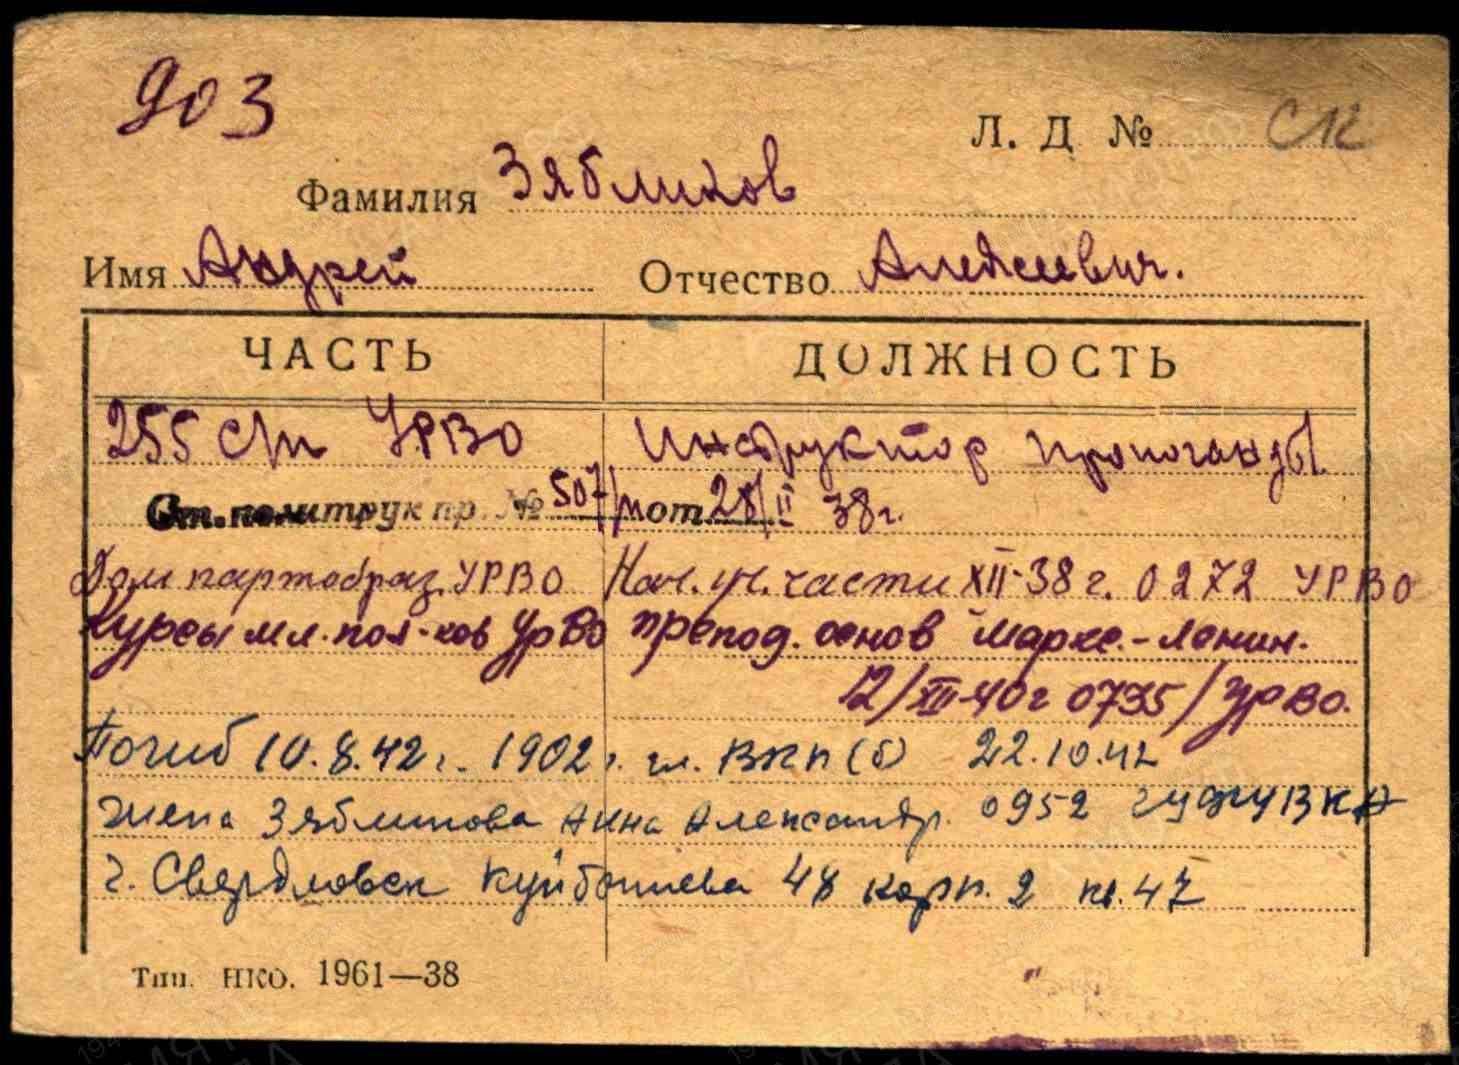 903
Л. Д. №
Фамилия Зябликов
Имя Андрей Отчество Алексеевич.
ЧАСТЬ ДОЛЖНОСТЬ
255 с/п УРВО Инструктор пропоганды.
Ст. политрук пр. № 507/п от 28/II 38г.
Дом партобраз. УРВО Нач. уч. части XII-38 г. 0272 УРВО
Курсы мл. пол-ков УрВО препод. основ маркс.-ленин.
12/XII-40г 0735/УрВО.
Погиб 10.8.42 г. 1902 г. чл. ВКП(б) 22.10.42
жена Зябликова Анна Александр. 0952
г. Свердловск Куйбышева 48 корп. 2 кв. 47
Тип. НКО. 1961—38